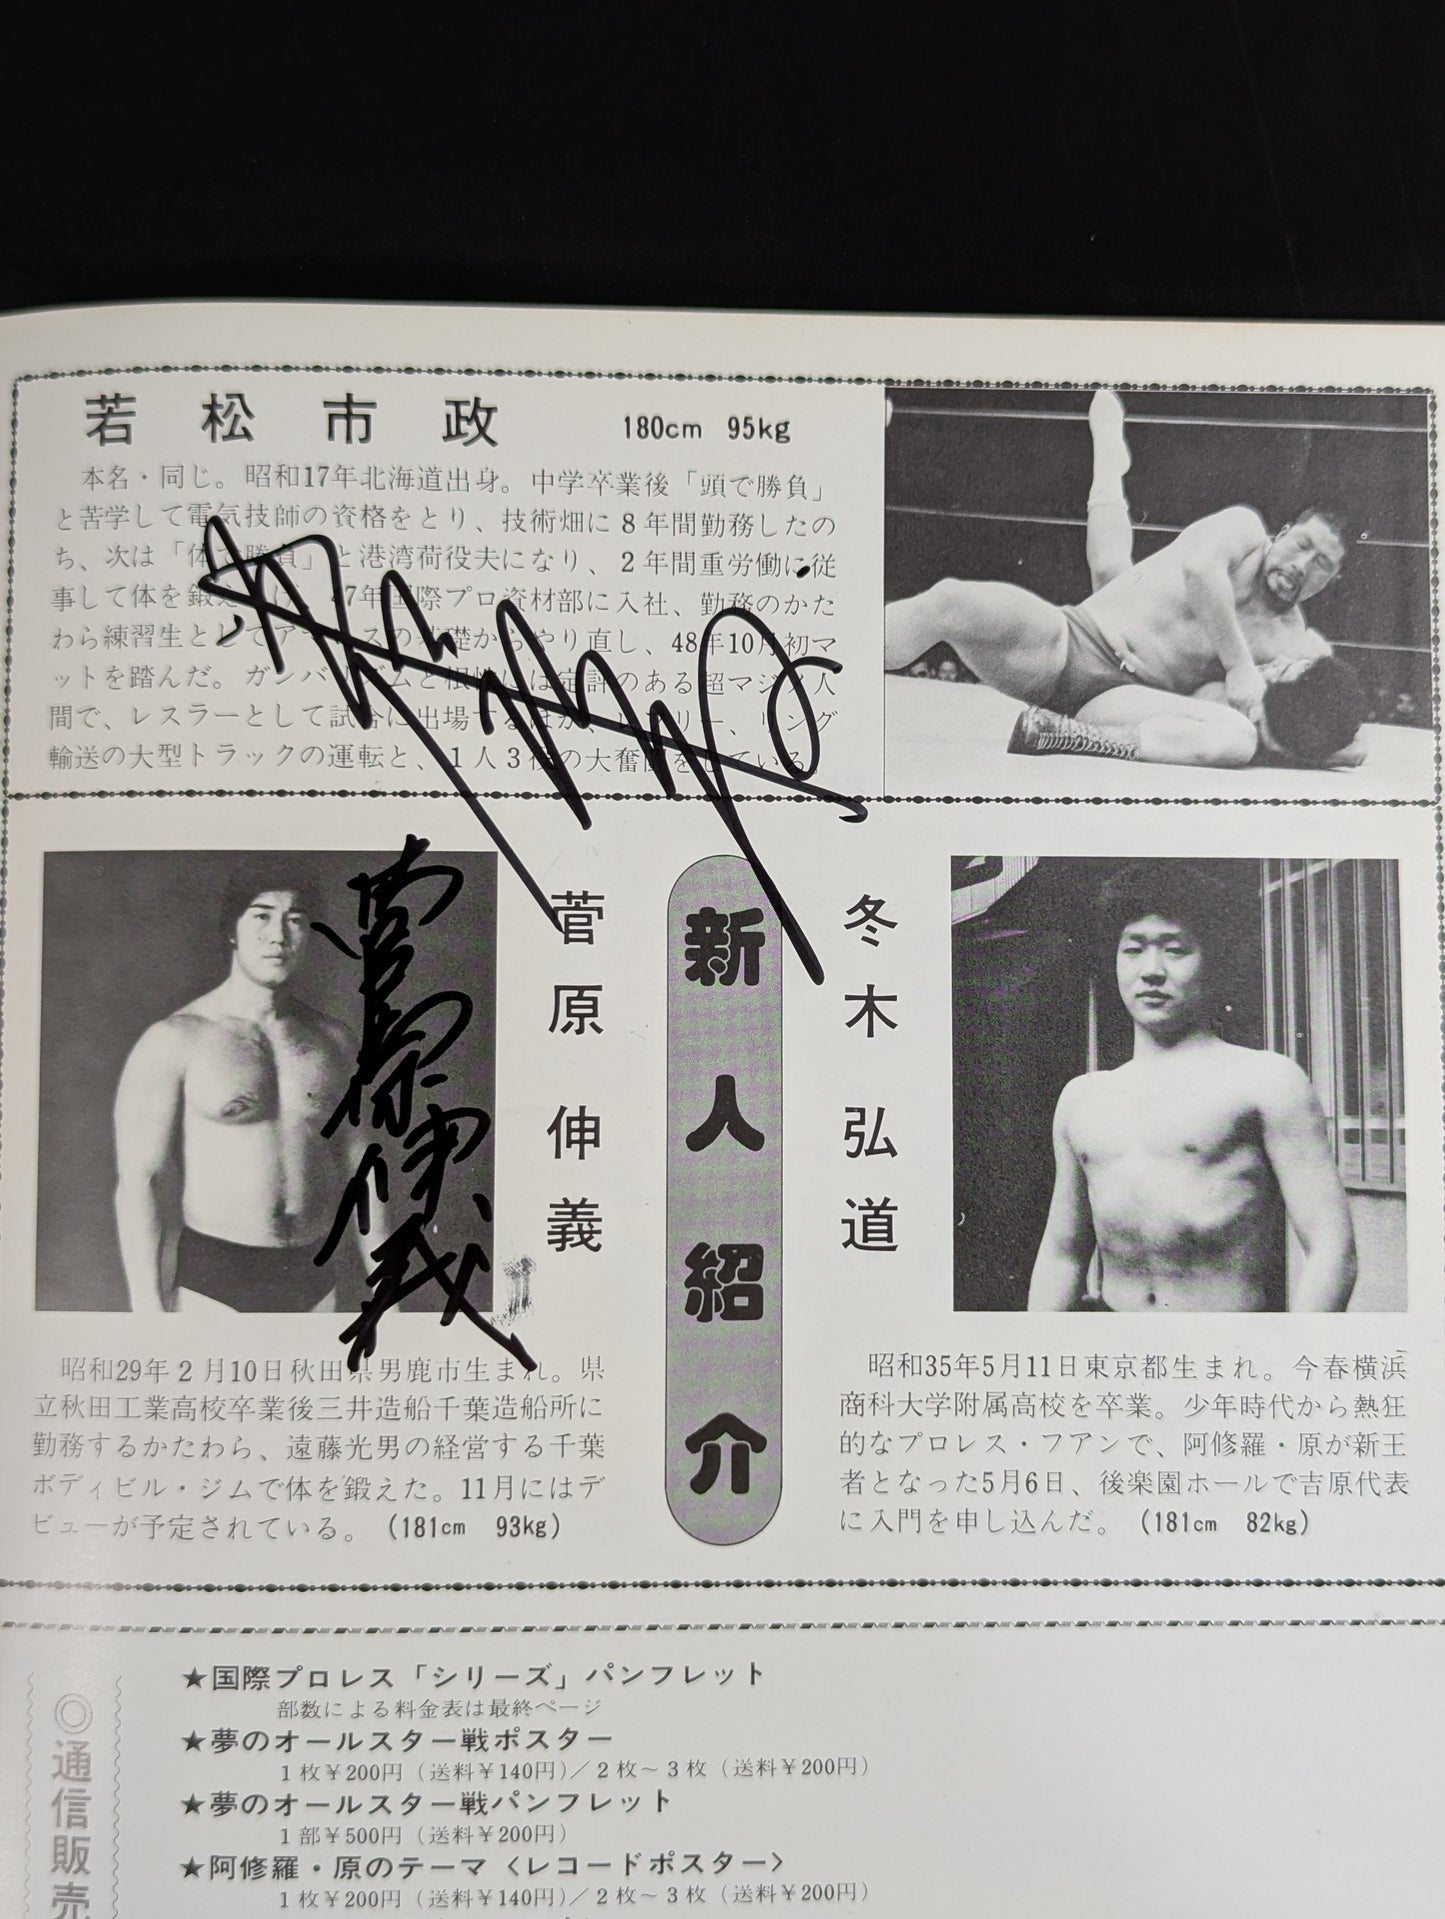 若松市政 180cm 95kg
本名・同じ。昭和17年北海道出身。中学卒業後「頭で勝負」
と苦学して電気技師の資格をとり、技術畑に8年間勤務したの
ち、次は「体で勝負」と港湾荷役夫になり、2年間重労働に従
事して体を鍛え 47年国際プロ資材部に入社、勤務のかた
わら練習生としてアマレスの基礎からやり直し、48年10月初マ
ットを踏んだ。ガンバリズムと根性には定評のある超マジメ人
間で、レスラーとして試合に出場するほか、レフリー、リング
輸送の大型トラックの運転と、1人3役の大奮闘をしている。
菅原伸義
菅原伸義
新人紹介
冬木弘道
昭和29年2月10日秋田県男鹿市生まれ。県
立秋田工業高校卒業後三井造船千葉造船所に
勤務するかたわら、遠藤光男の経営する千葉
ボディビル・ジムで体を鍛えた。11月にはデ
ビューが予定されている。(181cm 93kg)
昭和35年5月11日東京都生まれ。今春横浜
商科大学附属高校を卒業。少年時代から熱狂
的なプロレス・フアンで、阿修羅・原が新王
者となった5月6日、後楽園ホールで吉原代表
に入門を申し込んだ。(181cm 82kg)
◎通信販売
★国際プロレス「シリーズ」パンフレット
部数による料金表は最終ページ
★夢のオールスター戦ポスター
1枚¥200円(送料¥140円)/2枚~3枚(送料¥200円)
★夢のオールスター戦パンフレット
1部¥500円(送料¥200円)
★阿修羅・原のテーマ〈レコードポスター〉
1枚¥200円(送料¥140円)/2枚~3枚(送料¥200円)